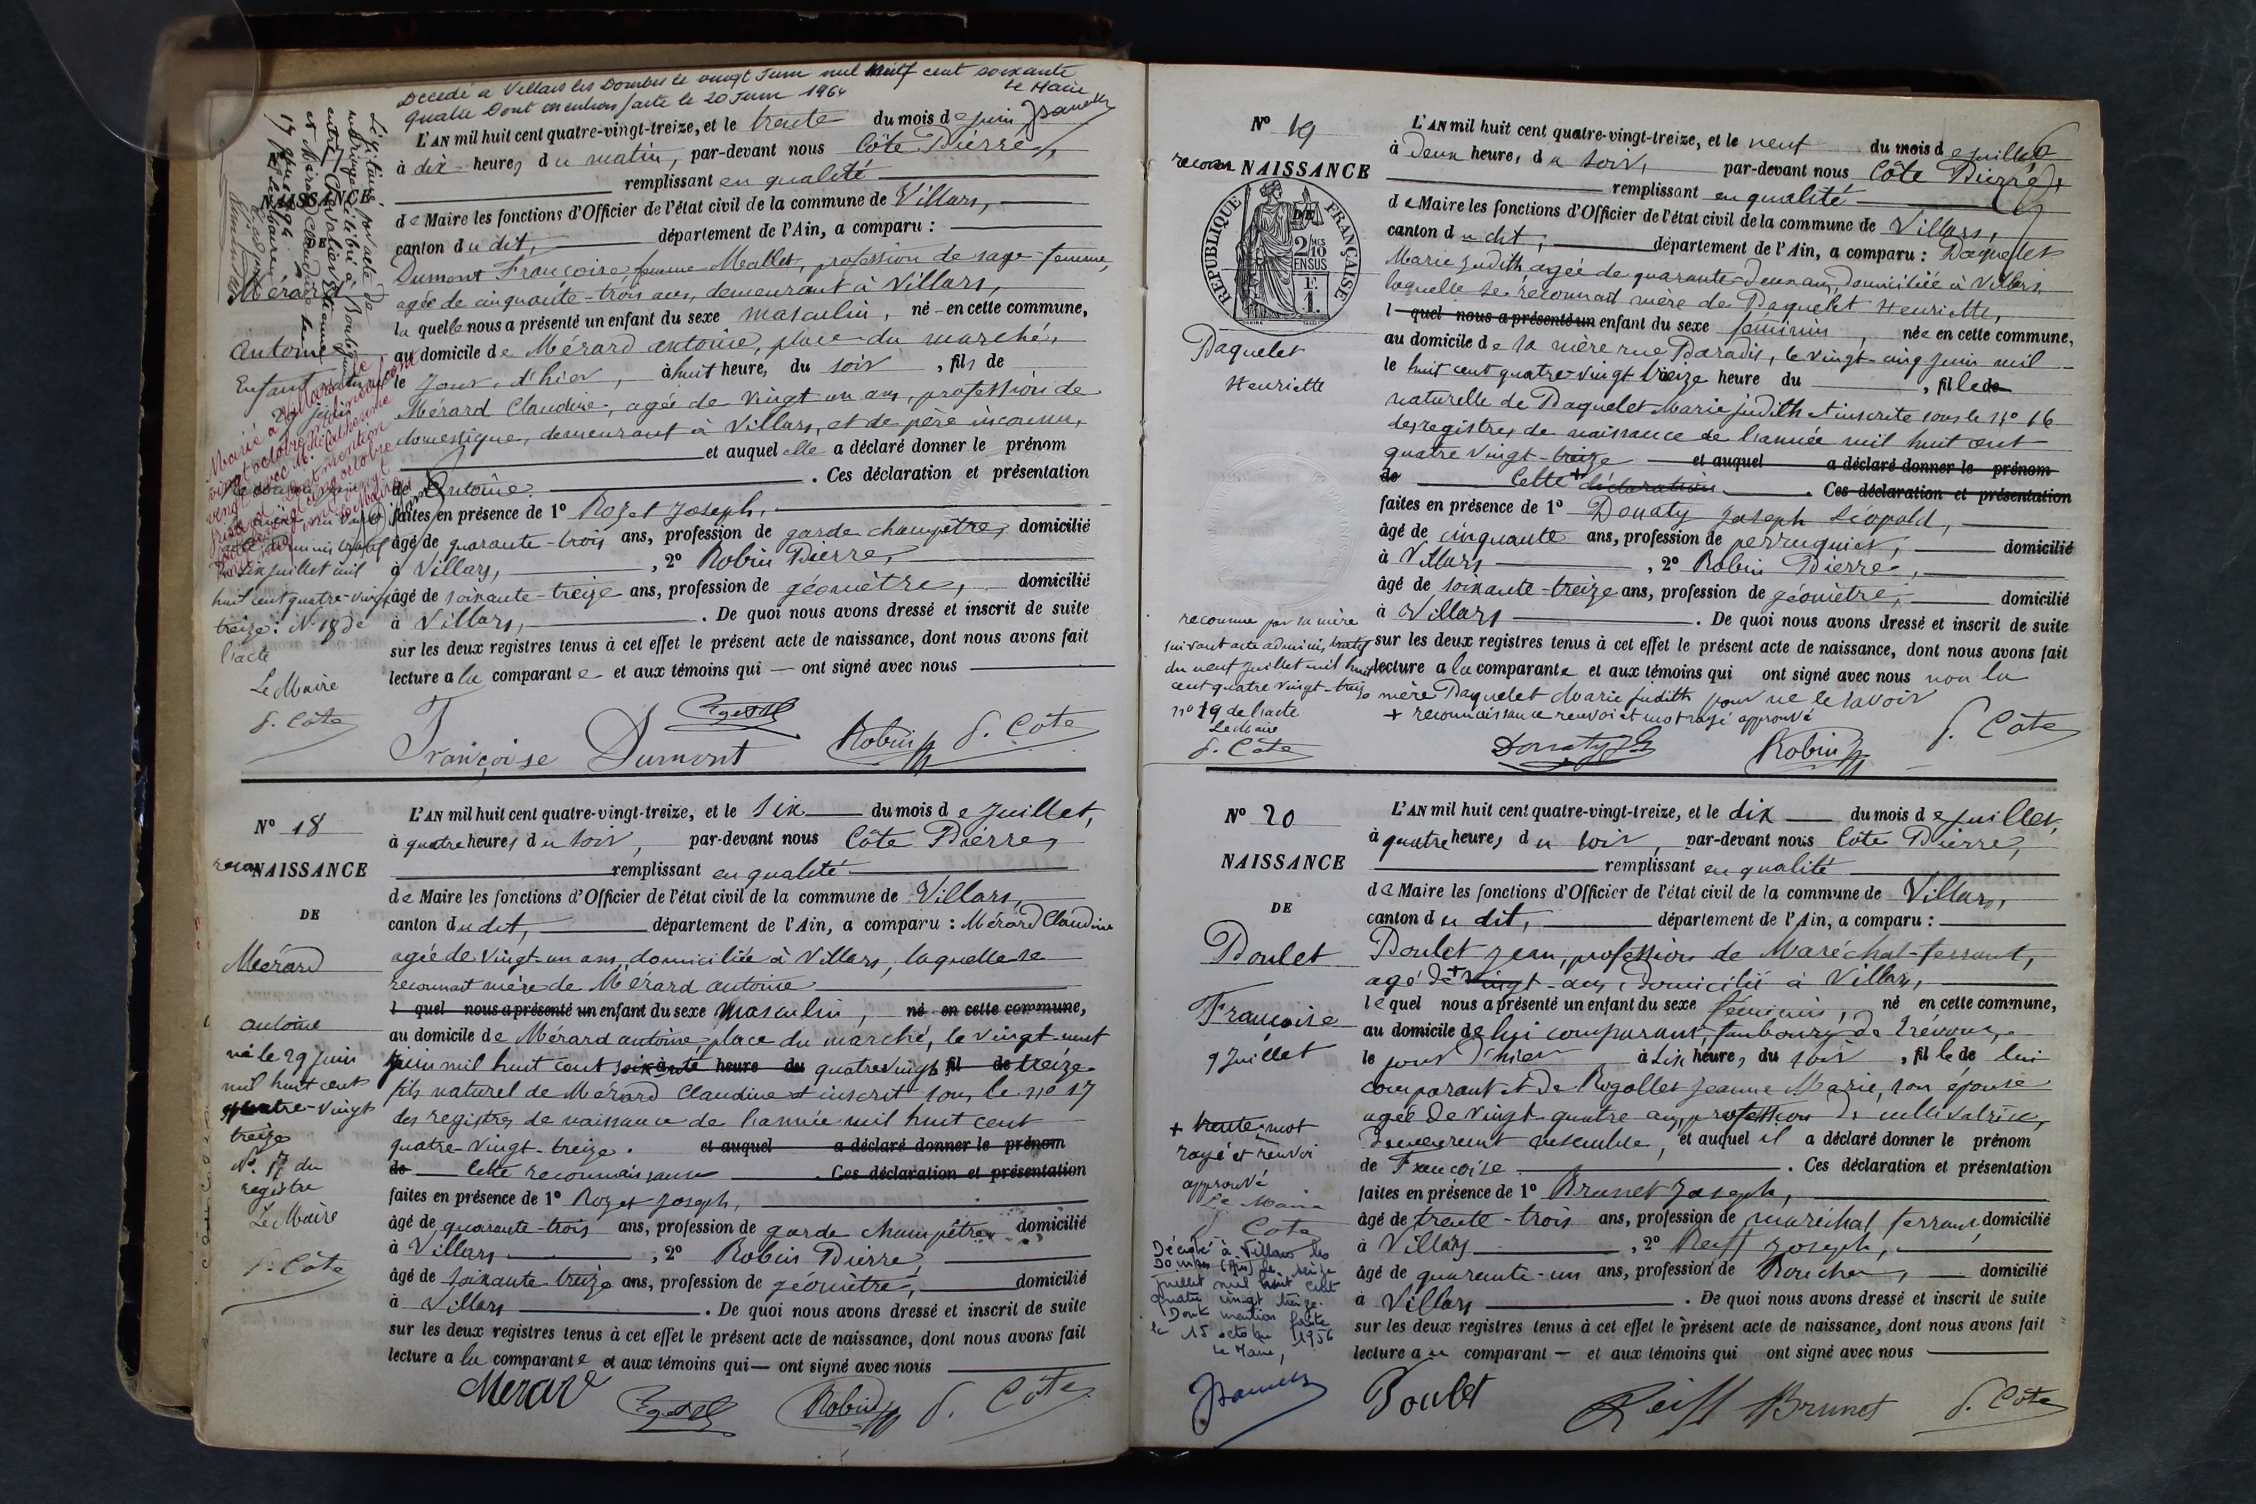 Décédé à Villars les Dombes le vingt Juin mil neuf cent soixante
quatre Dont mention faite le 20 Juin 1964
Le Maire
L'AN mil huit cent quatre-vingt-treize, et le trente du mois de juin
à dix heures du matin, par-devant nous Côte Pierre,
remplissant en qualité
de Maire les fonctions d'Officier de l'état civil de la commune de Villars,
canton dudit, département de l'Ain, a comparu :
Dumont Françoise femme Mallet, profession de sage-femme,
agée de cinquante-trois ans, demeurant à Villars,
laquelle nous a présenté un enfant du sexe masculin, né en cette commune,
au domicile de Mérard antoine, place du marché,
le jour d'hier, à huit heures du soir, fils de
Mérard Claudine, agée de vingt un ans, profession de
domestique, demeurant à Villars, et de père inconnu,
et auquel elle a déclaré donner le prénom
de Antoine. Ces déclaration et présentation
faites en présence de 1° Rozet Joseph,
âgé de quarante-trois ans, profession de garde champêtre, domicilié
à Villars, , 2° Robin Pierre,
âgé de soixante-treize ans, profession de géomètre, domicilié
à Villars, . De quoi nous avons dressé et inscrit de suite
sur les deux registres tenus à cet effet le présent acte de naissance, dont nous avons fait
lecture a la comparante et aux témoins qui ont signé avec nous
Françoise Dumont Robin P. Côte
NAISSANCE
DE
Mérard
Antoine
Enfant naturel
29 juin
Légitimé par acte de
mariage célébré à
entre Chevalier Etienne
et Mérard Claudine le
du six juillet mil
huit cent quatre-vingt
treize. N° 18 de
l'acte
Le Maire
P. Côte
N° 18
recon
NAISSANCE
DE
Mérard
antoine
né le 29 juin
mil huit cent
quatre-vingt
treize
N° 17 du
registre
Le Maire
P. Côte
L'AN mil huit cent quatre-vingt-treize, et le six du mois de Juillet,
à quatre heures du soir, par-devant nous Côte Pierre,
remplissant en qualité
de Maire les fonctions d'Officier de l'état civil de la commune de Villars,
canton dudit, département de l'Ain, a comparu : Mérard Claudine
agée de vingt-un ans, domiciliée à Villars, laquelle se
reconnait mère de Mérard antoine
l quel nous a présenté un enfant du sexe masculin, né en cette commune,
au domicile de Mérard antoine, place du marché, le vingt-neuf
juin mil huit cent soixante heure du quatrevingt fil de treize
fils naturel de Mérard Claudine et inscrit sous le n° 17
des registres de naissance de l'année mil huit cent
quatre-vingt-treize. et auquel a déclaré donner le prénom
de Cette reconnaissance . Ces déclaration et présentation
faites en présence de 1° Rozet Joseph,
âgé de quarante-trois ans, profession de garde champêtre domicilié
à Villars , 2° Robin Pierre,
âgé de soixante treize ans, profession de géomètre, domicilié
à Villars . De quoi nous avons dressé et inscrit de suite
sur les deux registres tenus à cet effet le présent acte de naissance, dont nous avons fait
lecture a la comparante et aux témoins qui ont signé avec nous
Merard Robin P. Côte
N° 19
recon NAISSANCE
DE
RÉPUBLIQUE FRANÇAISE
2/10 EN SUS
1 F.
Paquelet
Henriette
reconnue par sa mère
suivant acte administratif
du neuf juillet mil huit
cent quatre vingt-treize
n° 19 de l'acte
Le Maire
P. Côte
L'AN mil huit cent quatre-vingt-treize, et le neuf du mois de juillet
à deux heures du soir, par-devant nous Côte Pierre,
remplissant en qualité
de Maire les fonctions d'Officier de l'état civil de la commune de Villars,
canton dudit, département de l'Ain, a comparu : Paquelet
Marie Judith agée de quarante-deux ans, domiciliée à Villars
laquelle se reconnait mère de Paquelet Henriette,
l quel nous a présenté un enfant du sexe féminin, née en cette commune,
au domicile de sa mère rue Paradis, le vingt-cinq juin mil
le huit cent quatre vingt treize heure du , fille de
naturelle de Paquelet Marie Judith et inscrite sous le n° 16
des registres de naissance de l'année mil huit cent
quatre vingt-treize et auquel a déclaré donner le prénom
de Cette + déclaration . Ces déclaration et présentation
faites en présence de 1° Donaty Joseph Léopold,
âgé de cinquante ans, profession de perruquier, domicilié
à Villars , 2° Robin Pierre,
âgé de soixante-treize ans, profession de géomètre, domicilié
à Villars . De quoi nous avons dressé et inscrit de suite
sur les deux registres tenus à cet effet le présent acte de naissance, dont nous avons fait
lecture a la comparante et aux témoins qui ont signé avec nous non la
mère Paquelet Marie Judith pour ne le savoir
+ reconnaissance renvoi et mot rayé approuvé
Donaty Robin P. Côte
N° 20
NAISSANCE
DE
Poulet
Françoise
9 Juillet
+ trente mot
rayé et renvoi
approuvé
Le Maire
P. Cote
Décédé à Villars les
Dombes (Ain) le seize
juillet mil huit cent
quatre vingt treize.
Dont mention faite
le 15 octobre 1956
Le Maire,
L'AN mil huit cent quatre-vingt-treize, et le dix du mois de juillet,
à quatre heures du soir, par-devant nous Côte Pierre,
remplissant en qualité
de Maire les fonctions d'Officier de l'état civil de la commune de Villars,
canton dudit, département de l'Ain, a comparu :
Poulet Jean, profession de Maréchal-ferrant,
agé de + vingt-ans, domicilié à Villars,
lequel nous a présenté un enfant du sexe féminin, né en cette commune,
au domicile de lui comparant, faubourg de Trévoux,
le jour d'hier à six heures du soir, fille de lui
comparant et de Rogollet Jeanne Marie, son épouse
agée de vingt quatre ans, profession de cultivatrice,
demeurant ensemble, et auquel il a déclaré donner le prénom
de Françoise . Ces déclaration et présentation
faites en présence de 1° Brunet Joseph,
âgé de trente-trois ans, profession de maréchal ferrant, domicilié
à Villars , 2° Reiff Joseph,
âgé de quarante-un ans, profession de Boucher, domicilié
à Villars . De quoi nous avons dressé et inscrit de suite
sur les deux registres tenus à cet effet le présent acte de naissance, dont nous avons fait
lecture au comparant et aux témoins qui ont signé avec nous
Poulet Reiff Brunet P. Côte